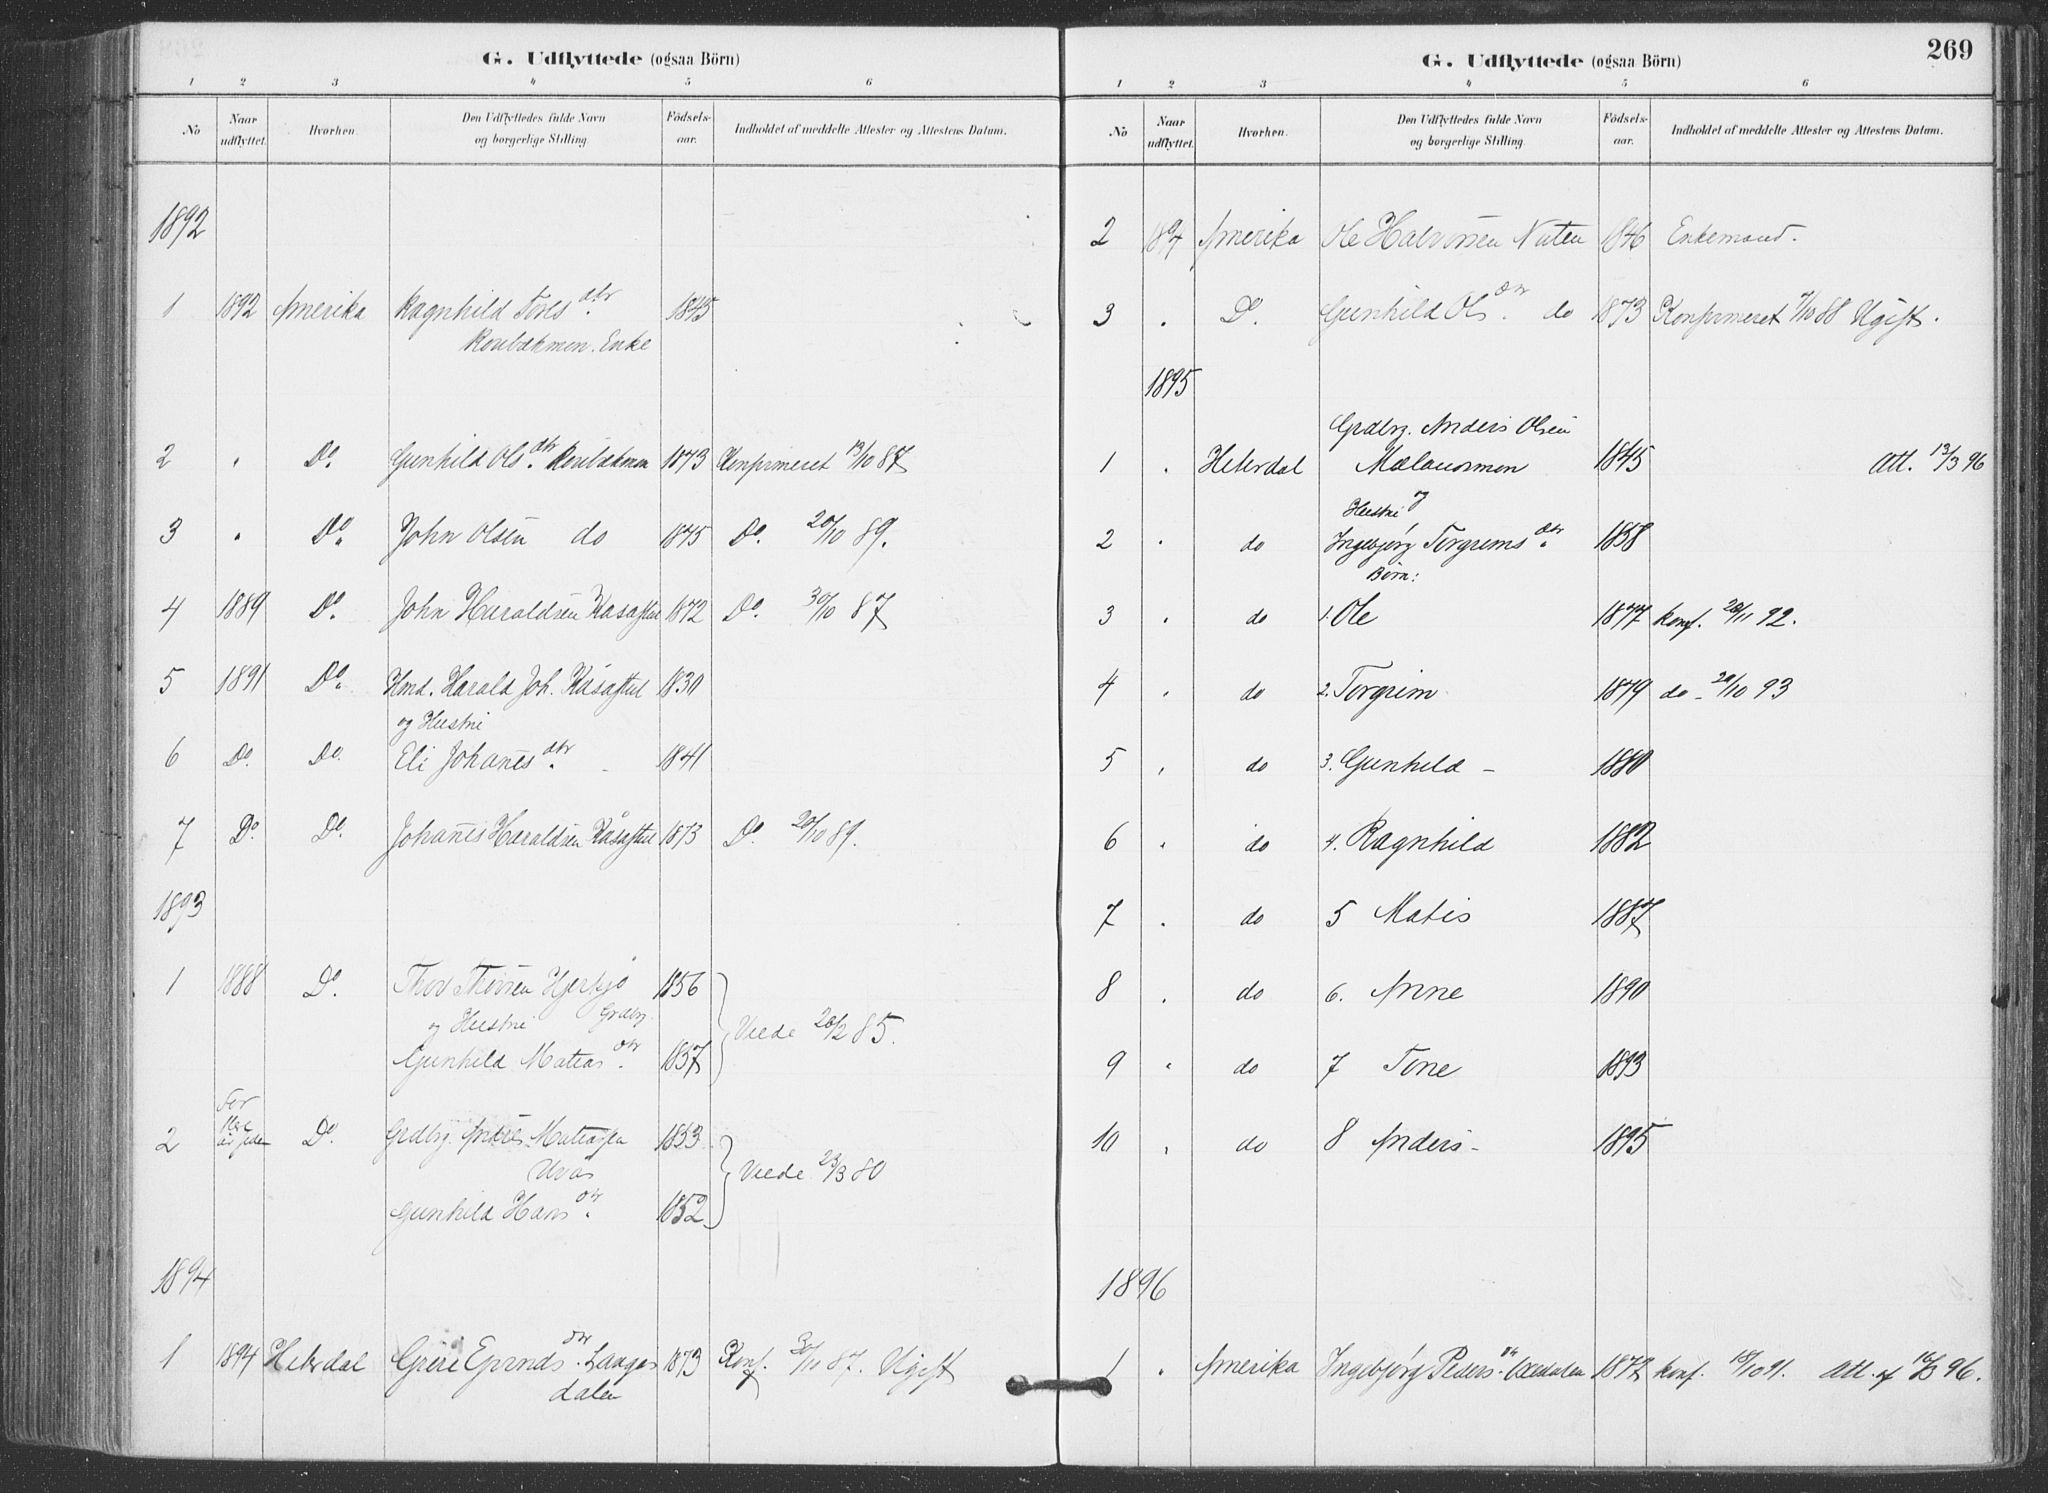 G. Udflyttede (ogsaa Börn)
1 2 3 4 5 6
No Naar udflyttet. Hvorhen. Den Udflyttedes fulde Navn og borgerlige Stilling Födsels-aar. Indholdet af meddelte Attester og Attestens Datum.
1892
1 1892 Amerika Ragnhild Tores dtr. 1845
Enke
2 " Do. Gunhild Ols dtr. 1873 Konfirmeret 13/10 87
3 " Do. John Olsen do 1875 Do. 20/10 89.
4 1889 Do. John Haraldsen Kåsastul 1872 Do. 30/10 87
5 1891 Do. Hmd. Harald Joh. Kåsastul 1830
og Hustri
6 Do. Do. Eli Johanes dtr. - 1841
7 Do. Do. Johanes Haraldsen Kåsastul 1873 Do. 20/10 89.
1893
1 1888 Do. Thov Thovsen Hjerkjo 1856
og Hustri Grdbrg. Viede 20/2 85.
Gunhild Matias dtr. 1857
For
flere
2 år siden Do. Grdbrg. Matiassen 1853
Uvås Viede 23/3 80
Gunhild Hans dtr. 1852
1894
1 1894 Hiterdal dtr. Laagas 1873 Konf. 30/10 87. Ugift
dalen
269
G. Udflyttede (ogsaa Börn)
1 2 3 4 5 6
No Naar udflyttet. Hvorhen. Den Udflyttedes fulde Navn og borgerlige Stilling Födsels-aar. Indholdet af meddelte Attester og Attestens Datum.
2 1894 Amerika Ole Halvorsen Nuten 1846 Enkemand.
3 " Do. Gunhild Ols dtr. do 1873 Konfirmeret 7/10 88 Ugift.
1895
Grdbrg. Anders Olsen
1 " Hiterdal 1845 Att. 13/3 96
Hustri og
2 " do Ingebjørg Torgrims dtr. 1858
Børn:
3 " do 1. Ole 1877 konf. 20/11 92.
4 " do 2. Torgrim 1879 do - 29/10 93
5 " do 3. Gunhild - 1880
6 " do 4. Ragnhild 1882
7 " do 5 Matis 1887
8 " do 6. Anne 1890
9 " do 7 Tone 1893
10 " do 8 Anders - 1895
1896
1 " Amerika Ingebjørg Peders dtr. 1877 konf. 18/10 91. Att. af 16/3 96.